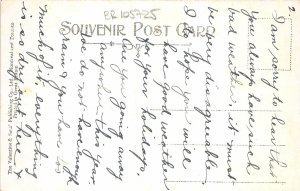 BR 105725
SOUVENIR POST CARD
2.
I am sorry to hear that
you always have such
bad weather, it must
be very disagreeable.
I do hope you will
have good weather
for your holidays.
Are you going away
anywhere this year
we do not have enough
rain & you have too
much, it everything
is so dry here &
The Valentine & Sons' Publishing Co., Ltd., Montreal and Toronto